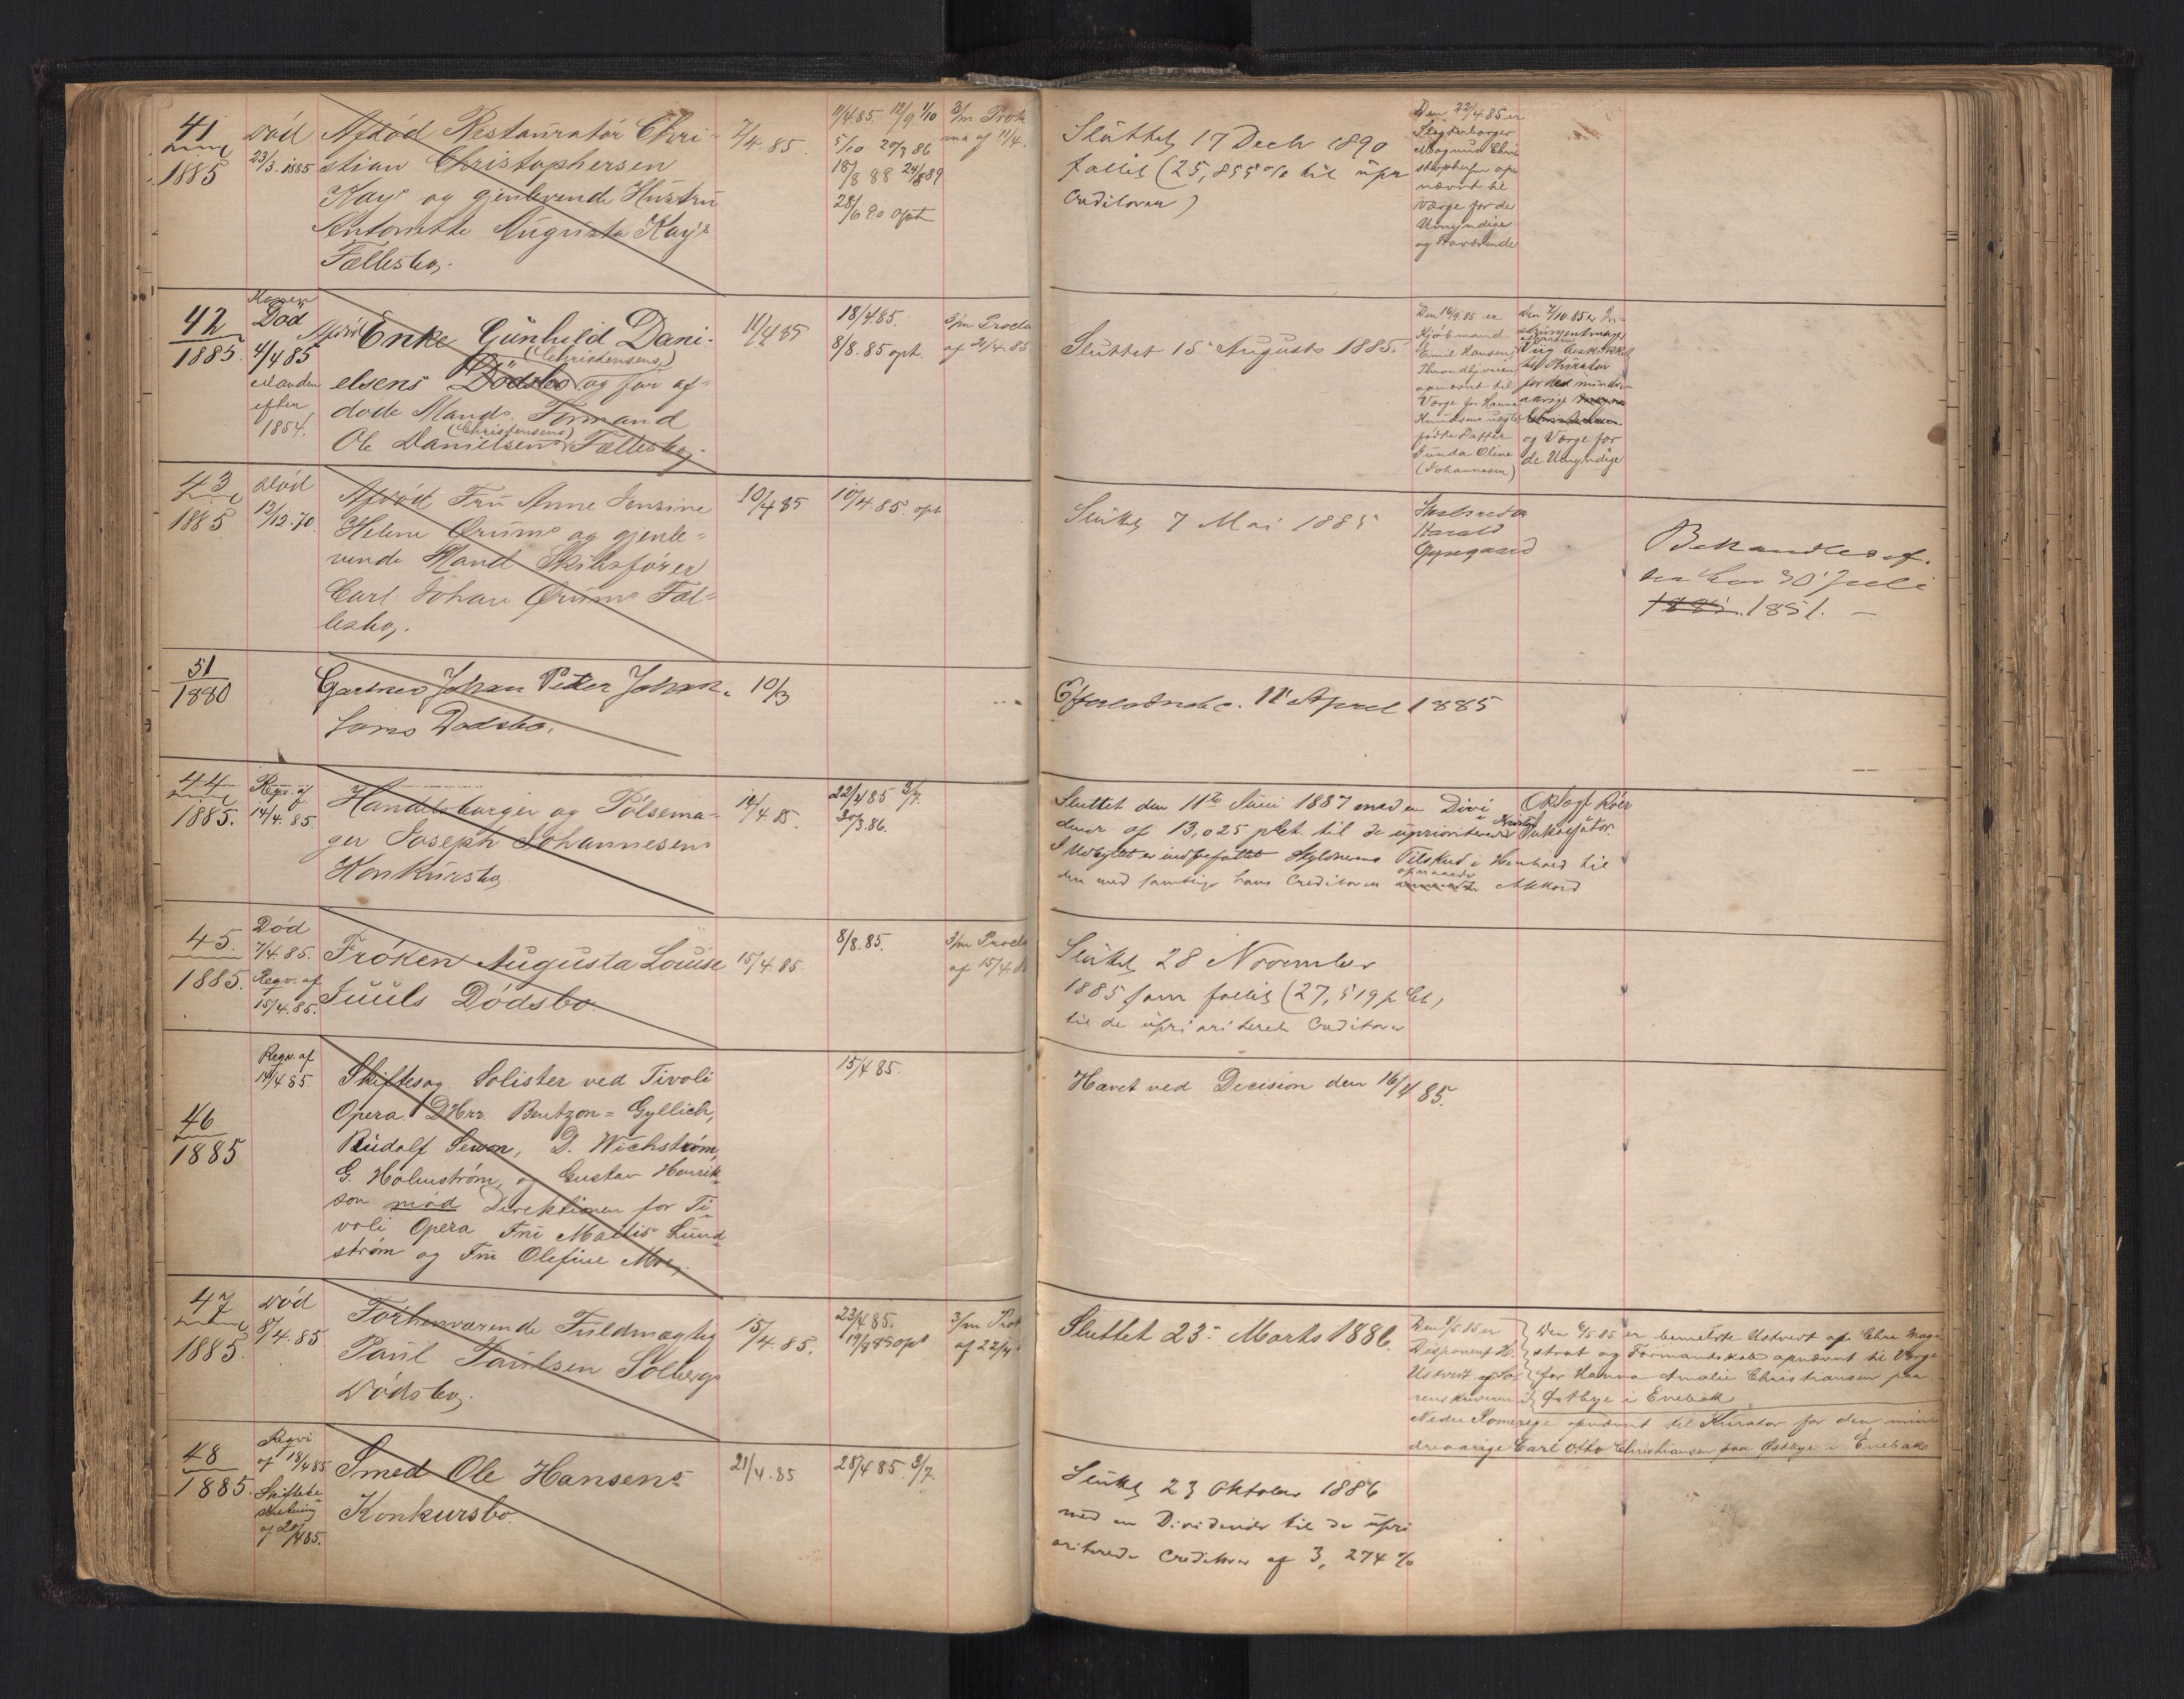 41
1885
Død
23/3. 1885
Afdød Restauratør Chri-
stian Christophersen
Kays og gjenlevende Hustru
Antonette Augusta Kay's
Fællesbo,
7/4. 85.
11/4.85. 12/9 1/10
5/10 20/3 86
18/8 88 24/8 89
28/6 90 opt
3/m Prok
ma af 11/4.
Sluttet 17 Decbr 1890
fallit (25,855 % til upr
Creditorer)
Den 22/4.85 er
Magnus Chri
stophersen op
nævnt til
Værge for de
Umyndige
og Fraværende
42
1885.
Død
4/4 85
Manden
efter
1854.
Afdøde Enke Gunhild Dani-
(Christensens)
elsens Dødsbo og før af-
døde Mands Formand
(Christensens)
Ole Danielsens Fællesbo,
11/4 85
18/4.85.
8/8.85 opt.
3/m Procla
af 21/4.85
Sluttet 15 August 1885.
Den 19/9.85 er
Kjøbmand
Emil Hansen,
Throndhjemsveien
opnævnt til
Værge for Hanna
Knudsens uægte
fødte Datter
Gunda Oline
(Johannesen)
Den 7/10 85 er In-
strumentmager
til Kurator
for den mindre-
aarige
og Værge for
de Umyndige
43
1885
Død
12/12.70
Afdød Fru Anne Jensine
Helene Ørums og gjenle-
vende Mand Skibsfører
Carl Johan Ørums Fæl-
lesbo,
10/4 85
10/4.85. opt
Sluttet 7 Mai 1885
Harald
Gyssgaard
Behandles ef.
ter Lov 30' Juli
1885. 1851. —
51
1880
Gartner Johan Peter Johan-
sens Dødsbo.
10/3
Efterladende. 11' April 1885
44
1885.
Reqv. af
14/4. 85.
Handelsborger og Pølsema-
ger Joseph Johannesens
Konkursbo,
14/4. 85.
22/4 85 3/7.
30/3.86.
Sluttet den 11te Juni 1887 med en Divi
dende af 13,025 pCt. til de uprioriterede
I Udbyttet er indbefattet Skyldnerens Tilskud i Henhold til
den med samtlige hans Creditorer opnaaede Akkord
45.
1885.
Død
7/4.85.
Reqv. af
15/4.85.
Frøken Augusta Louise
Juuls Dødsbo.
15/4.85.
8/8.85.
3/m Procla
af 15/4.8
Sluttet 28 November
1885 som fallit (27,519 p Ct,
til de uprioriterede Creditorer
46
1885
Reqv. af
14/4 85.
Skiftesag. Solister ved Tivoli
Opera. DHrr. Bentzon-Gyllich,
Rudolf Sewon, D. Wichstrøm,
G. Holmstrøm, og Gustav Henrik-
son mod Direktionen for Ti-
voli Opera Fru Mattis Lund-
strøm og Fru Olefine Moe,
15/4 85.
Hævet ved Decision den 16/4 85.
47
1885.
Død
8/4. 85
Forhenværende Fuldmægtig
Paul Paulsen Solbergs
Dødsbo,
15/4. 85.
23/4 85.
19/8 85 opt
3/m Prok
af 22/4
Sluttet 23de Marts 1886.
Den 1/5 85 er
Disponent H.
Den 6/5.85 er bemeldte Ustvedt af Chra Mag-
strat og Formandskab opnævnt til Værge
for Hanna Amalie Christiansen paa
Østbye i Enebak
Nedre Romerige opnævnt til Kurator for den min
dreaarige Carl Otto Christiansen paa Østbye i Enebak
48
1885.
Reqvi
af 18/4 85
Skiftebe
slutning
af 20/4 85.
Smed Ole Hansens
Konkursbo.
21/4.85
28/4 85. 3/7.
Sluttet 23 Oktober 1886
med en Dividende til de upri
oriterede Creditorer af 3,274 %